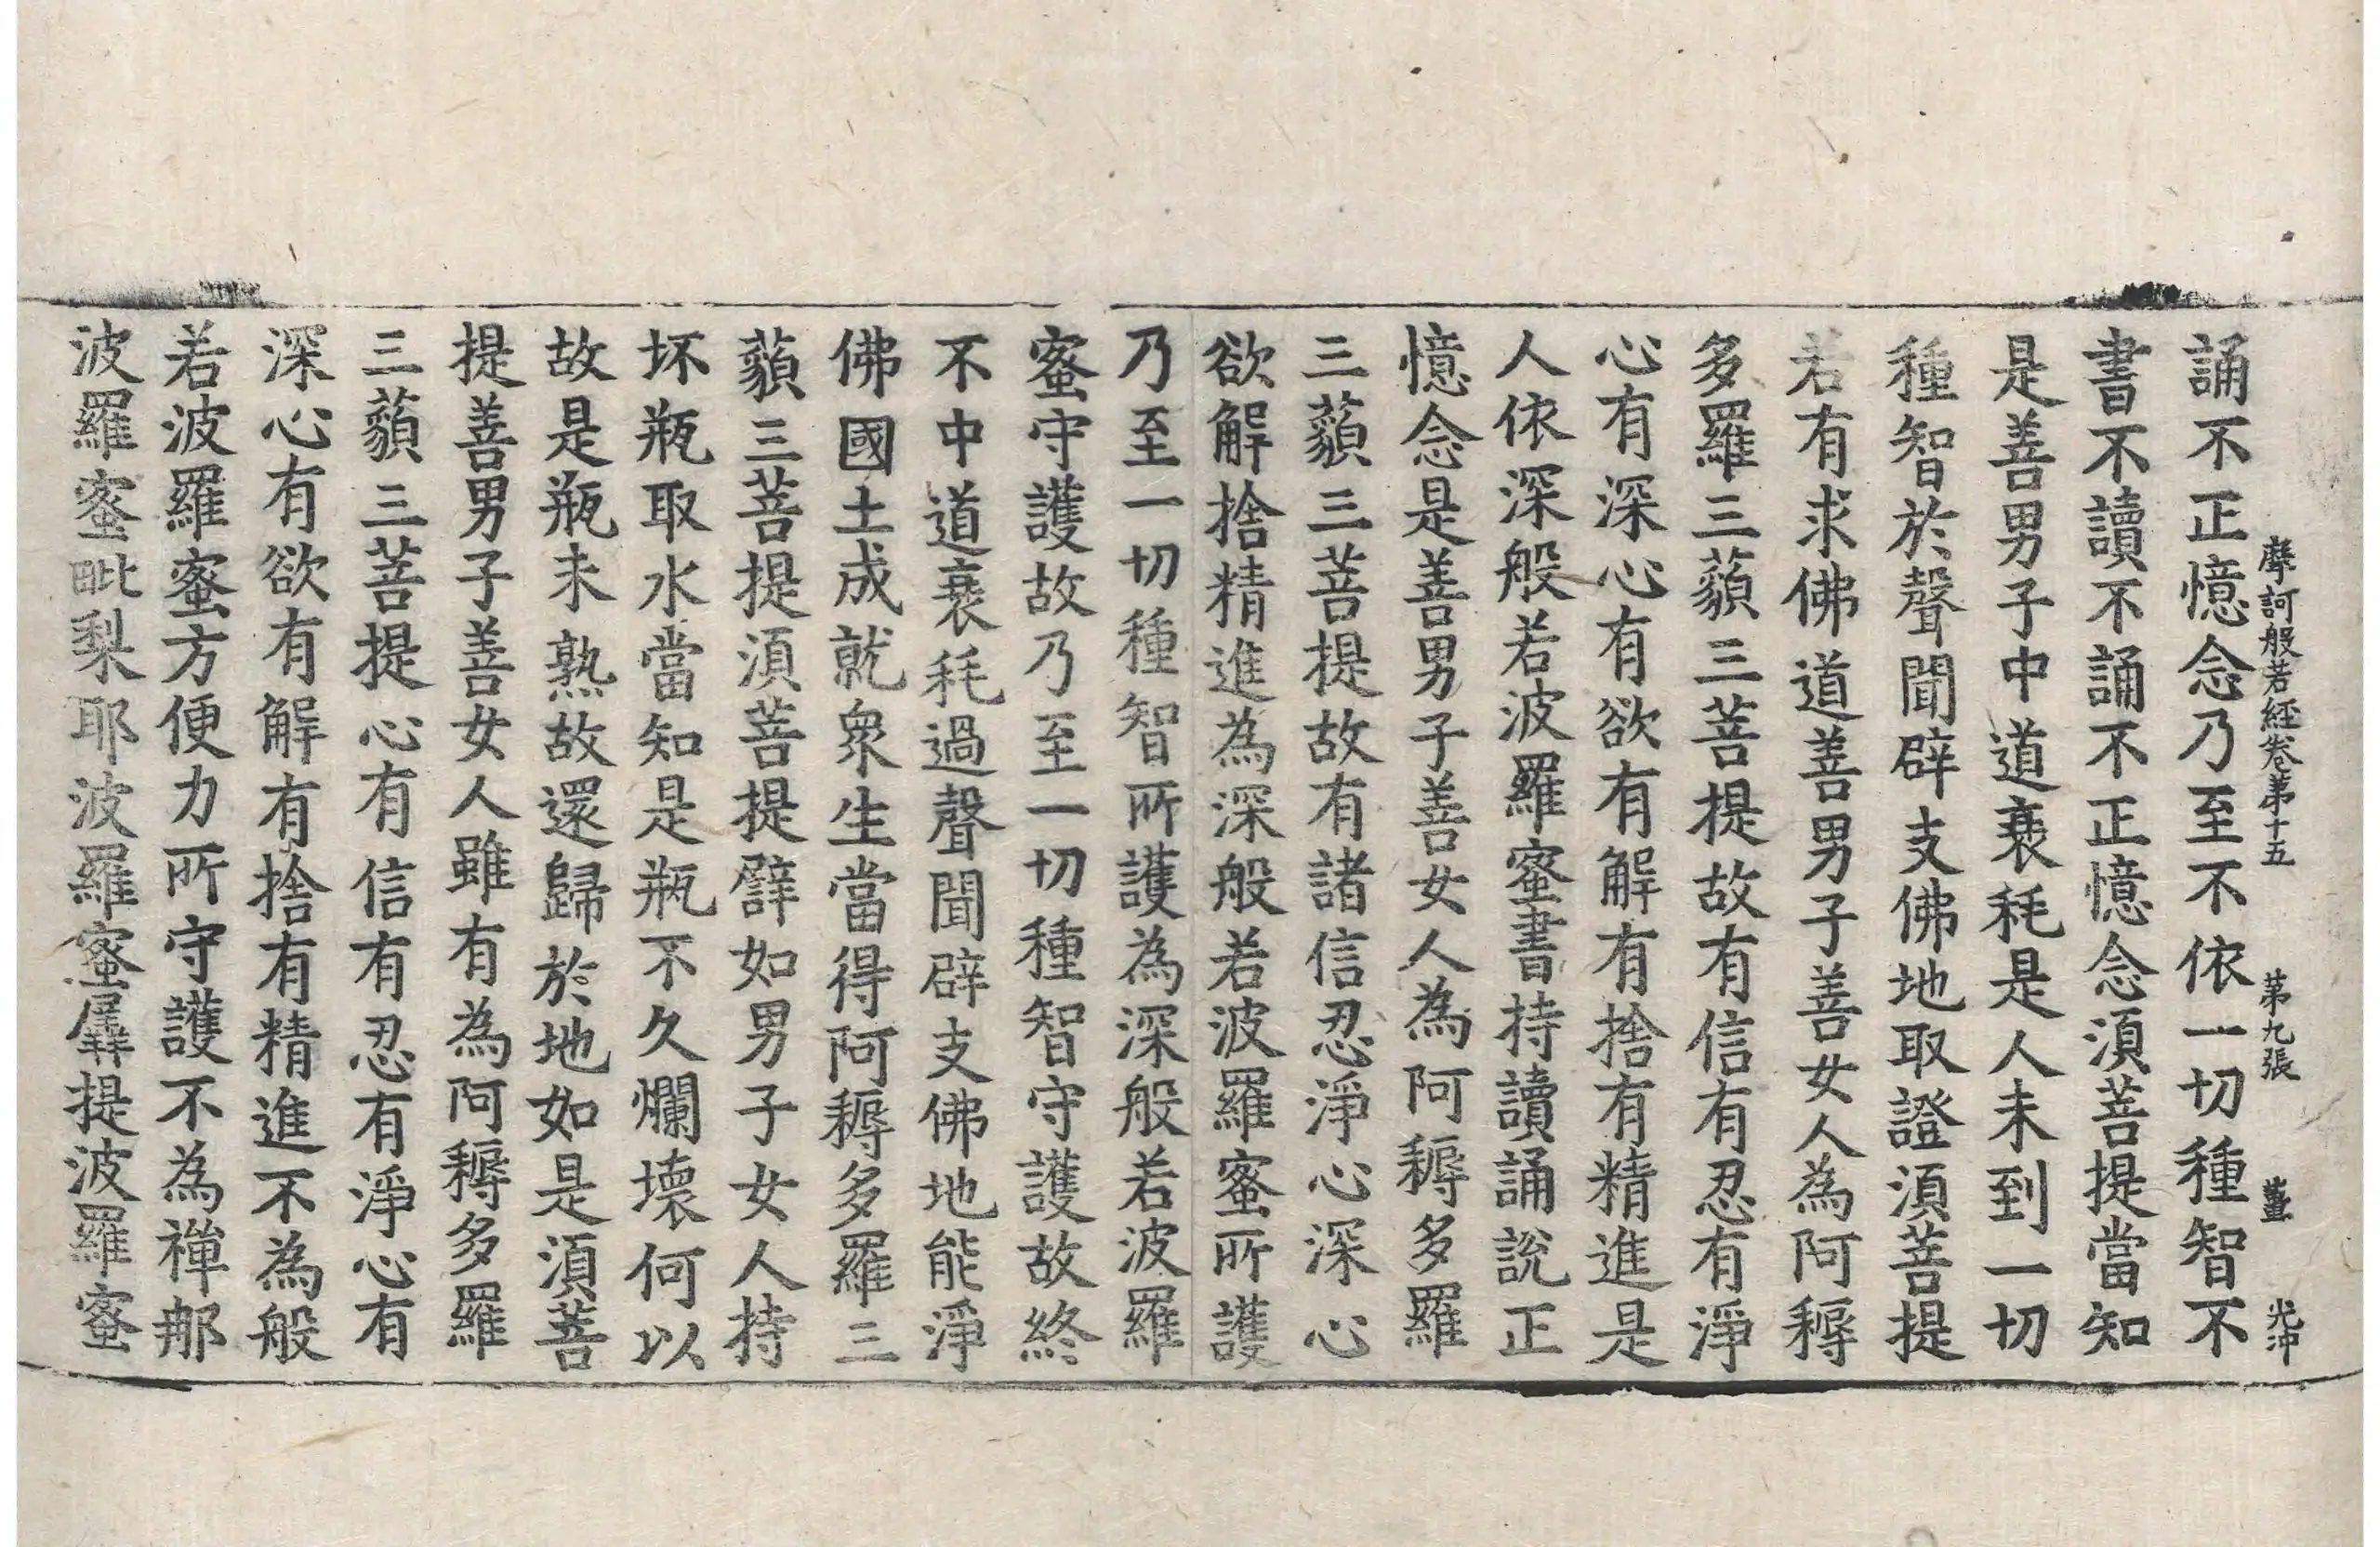 摩訶般若經卷第十五 第九張 薑 光沖
誦不正憶念乃至不依一切種智不
書不讀不誦不正憶念須菩提當知
是善男子中道衰耗是人未到一切
種智於聲聞辟支佛地取證須菩提
若有求佛道善男子善女人為阿耨
多羅三藐三菩提故有信有忍有淨
心有深心有欲有解有捨有精進是
人依深般若波羅蜜書持讀誦說正
憶念是善男子善女人為阿耨多羅
三藐三菩提故有諸信忍淨心深心
欲解捨精進為深般若波羅蜜所護
乃至一切種智所護為深般若波羅
蜜守護故乃至一切種智守護故終
不中道衰耗過聲聞辟支佛地能淨
佛國土成就衆生當得阿耨多羅三
藐三菩提須菩提譬如男子女人持
坏瓶取水當知是瓶不久爛壞何以
故是瓶未熟故還歸於地如是須菩
提善男子善女人雖有為阿耨多羅
三藐三菩提心有信有忍有淨心有
深心有欲有解有捨有精進不為般
若波羅蜜方便力所守護不為禪那
波羅蜜毗梨耶波羅蜜羼提波羅蜜